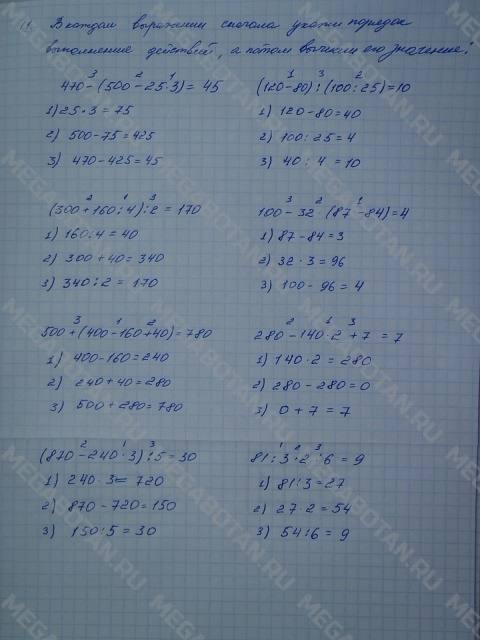 11. В каждом выражении сначала укажи порядок
выполнение действий, а потом вычисли его значение:
3 2 1
470-(500-25·3)= 45
1) 25·3=75
2) 500-75=425
3) 470-425=45
1 3 2
(120-80):(100:25)=10
1) 120-80=40
2) 100:25=4
3) 40:4=10
2 1 3
(300+160:4):2=170
1) 160:4=40
2) 300+40=340
3) 340:2=170
3 2 1
100-32·(87-84)=4
1) 87-84=3
2) 32·3=96
3) 100-96=4
3 1 2
500+(400-160+40)=780
1) 400-160=240
2) 240+40=280
3) 500+280=780
2 1 3
280-140·2+7=7
1) 140·2=280
2) 280-280=0
3) 0+7=7
2 1 3
(870-240·3):5=30
1) 240·3=720
2) 870-720=150
3) 150:5=30
1 2 3
81:3·2:6=9
1) 81:3=27
2) 27·2=54
3) 54:6=9
MEGABOTAN.RU